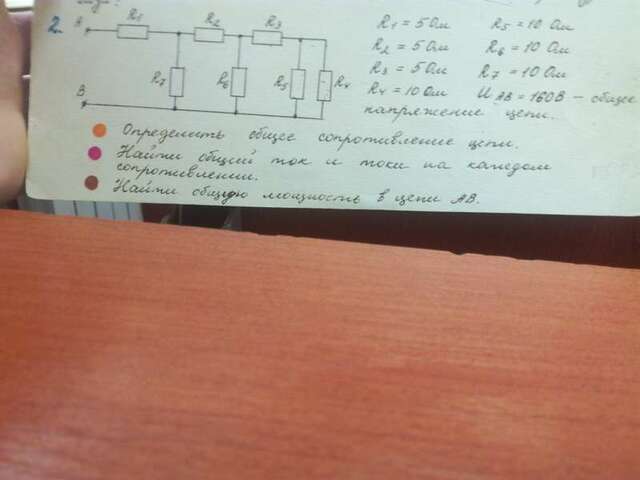 2.
A
R1
R2
R3
R7
R6
R5
R4
B
R1 = 5 Ом
R5 = 10 Ом
R2 = 5 Ом
R6 = 10 Ом
R3 = 5 Ом
R7 = 10 Ом
R4 = 10 Ом
UАВ = 160 В – общее
напряжение цепи.
Определить общее сопротивление цепи.
Найти общий ток и токи на каждом
сопротивлении.
Найти общую мощность в цепи АВ.